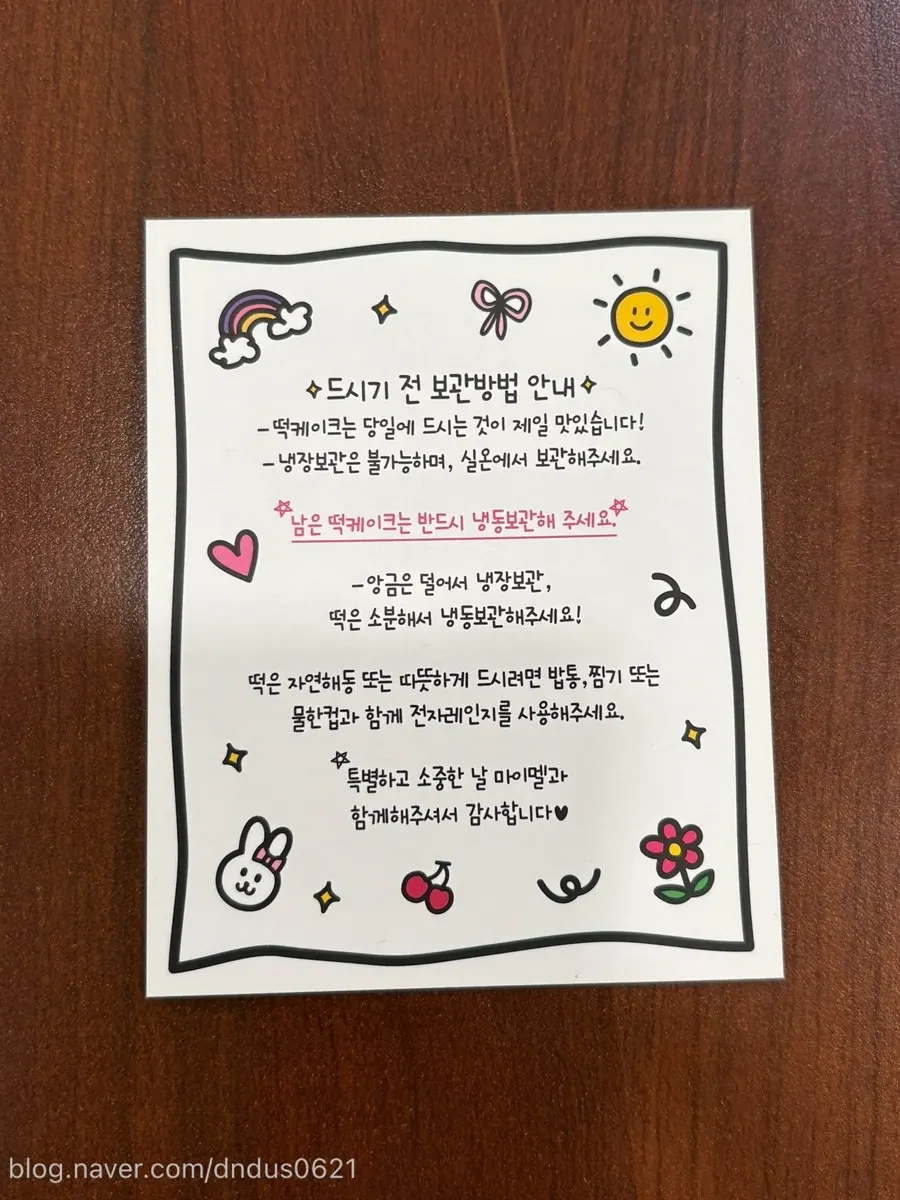 드시기 전 보관방법 안내
-떡케이크는 당일에 드시는 것이 제일 맛있습니다!
-냉장보관은 불가능하며, 실온에서 보관해주세요.
남은 떡케이크는 반드시 냉동보관해 주세요.
-앙금은 덜어서 냉장보관,
떡은 소분해서 냉동보관해주세요!
떡은 자연해동 또는 따뜻하게 드시려면 밥통,찜기 또는
물한컵과 함께 전자레인지를 사용해주세요.
특별하고 소중한 날 마이멜과
함께해주셔서 감사합니다♥
blog.naver.com/dndus0621